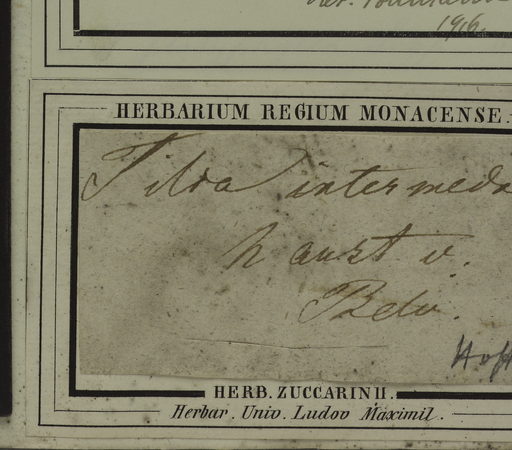 1916.
HERBARIUM REGIUM MONACENSE.
Tilia intermedia
h aust v.
HERB. ZUCCARINII.
Herbar. Univ. Ludov Maximil.